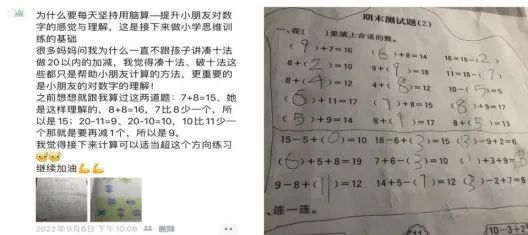 为什么要每天坚持用脑算—提升小朋友对数
字的感觉与理解，这是接下来做小学思维训
练的基础
很多妈妈问我为什么一直不跟孩子讲凑十法
做20以内的加减，我觉得凑十法、破十法这
些都只是帮助小朋友计算的方法，更重要的
是小朋友的对数字的理解！
之前想想就跟我算过这两道题：7+8=15、她
是这样理解的，8+8=16，7比8少一个，所
以是15；20-11=9、20-10=10，10比11少一
个那就是要再减1个，所以是9。
我觉得接下来计算可以适当超这个方向练习
继续加油
2022年9月6日 下午10:06 删除
期末测试题(2)
一、在( )里填上合适的数。
(9)+7=16 (6)+8=14 16=18-(2)
8+(2)=10 9+(9)=18 11=18-(7)
8+(4)=12 4+(8)=12 10-(5)=5
(6)+11=17 (7)+8=15 (8)+9=17
(5)+9=14 8+(9)=17 8+(5)=13
15-5+(0)=10 18-6+(3)=15 )-9+2=6
(6)+5+8=19 7+6-(3)=10 )+3+9=
9-8+(11)=12 14+5-(7)=12 )-2+7=8
、连一连。
11 10-3+2